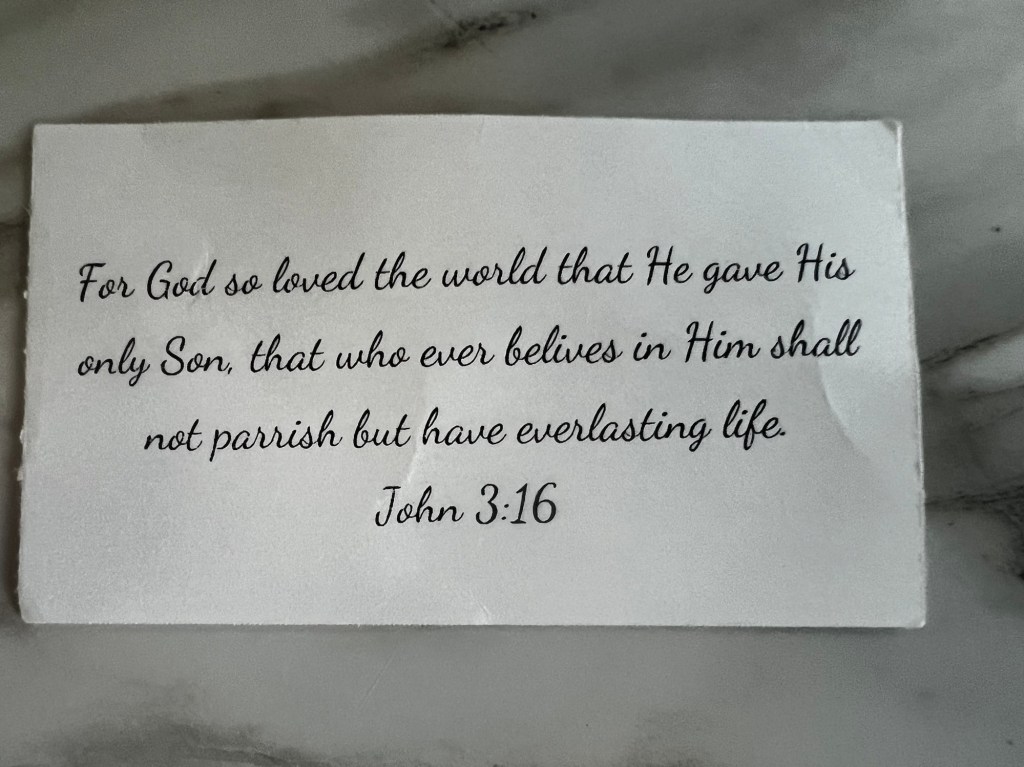 For God so loved the world that He gave His
only Son, that who ever belives in Him shall
not parrish but have everlasting life.
John 3:16